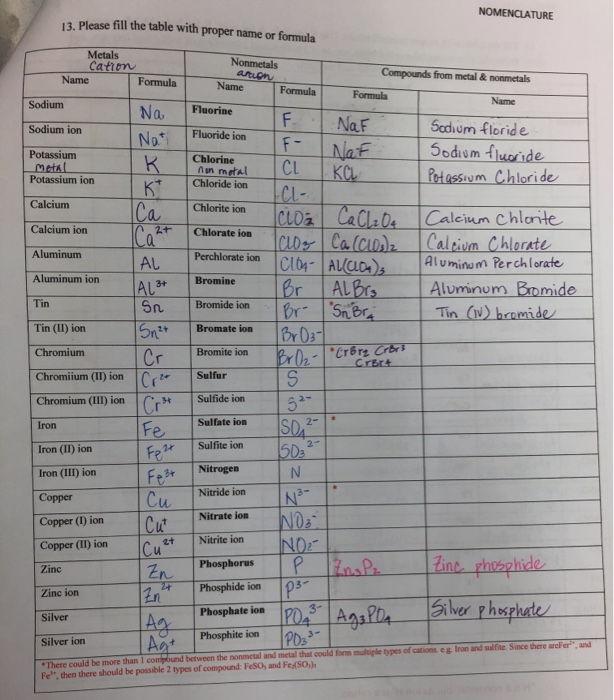 NOMENCLATURE
13. Please fill the table with proper name or formula
Metals Nonmetals Compounds from metal & nonmetals
Cation anion
Name Formula Name Formula Formula Name
Sodium Na Fluorine F NaF Sodium floride
Sodium ion Na+ Fluoride ion F- NaF Sodium fluoride
Potassium metal K Chlorine non metal Cl KCl Potassium Chloride
Potassium ion K+ Chloride ion CL-
Calcium Ca Chlorite ion ClO2- CaCl2O4 Calcium Chlorite
Calcium ion Ca2+ Chlorate ion ClO3- Ca(ClO3)2 Calcium Chlorate
Aluminum AL Perchlorate ion ClO4- AL(ClO4)3 Aluminum Perchlorate
Aluminum ion AL3+ Bromine Br ALBr3 Aluminum Bromide
Tin Sn Bromide ion Br- *SnBr4 Tin (IV) bromide
Tin (II) ion Sn2+ Bromate ion BrO3-
Chromium Cr Bromite ion BrO2- *CrBr2 CrBr3
CrBr4
Chromiium (II) ion Cr2+ Sulfur S
Chromium (III) ion Cr3+ Sulfide ion S2-
Iron Fe Sulfate ion SO4 2- *
Iron (II) ion Fe2+ Sulfite ion SO3 2-
Iron (III) ion Fe3+ Nitrogen N
Copper Cu Nitride ion N3- *
Copper (I) ion Cu+ Nitrate ion NO3-
Copper (II) ion Cu2+ Nitrite ion NO2-
Zinc Zn Phosphorus P Zn3P2 Zinc phosphide
Zinc ion Zn2+ Phosphide ion P3-
Silver Ag Phosphate ion PO4 3- Ag3PO4 Silver phosphate
Silver ion Ag+ Phosphite ion PO3 3-
*There could be more than 1 compound between the nonmetal and metal that could form multiple types of cations. e.g. Iron and sulfite. Since there are Fe2+, and
Fe3+, then there should be possible 2 types of compound: FeSO3 and Fe2(SO3)3